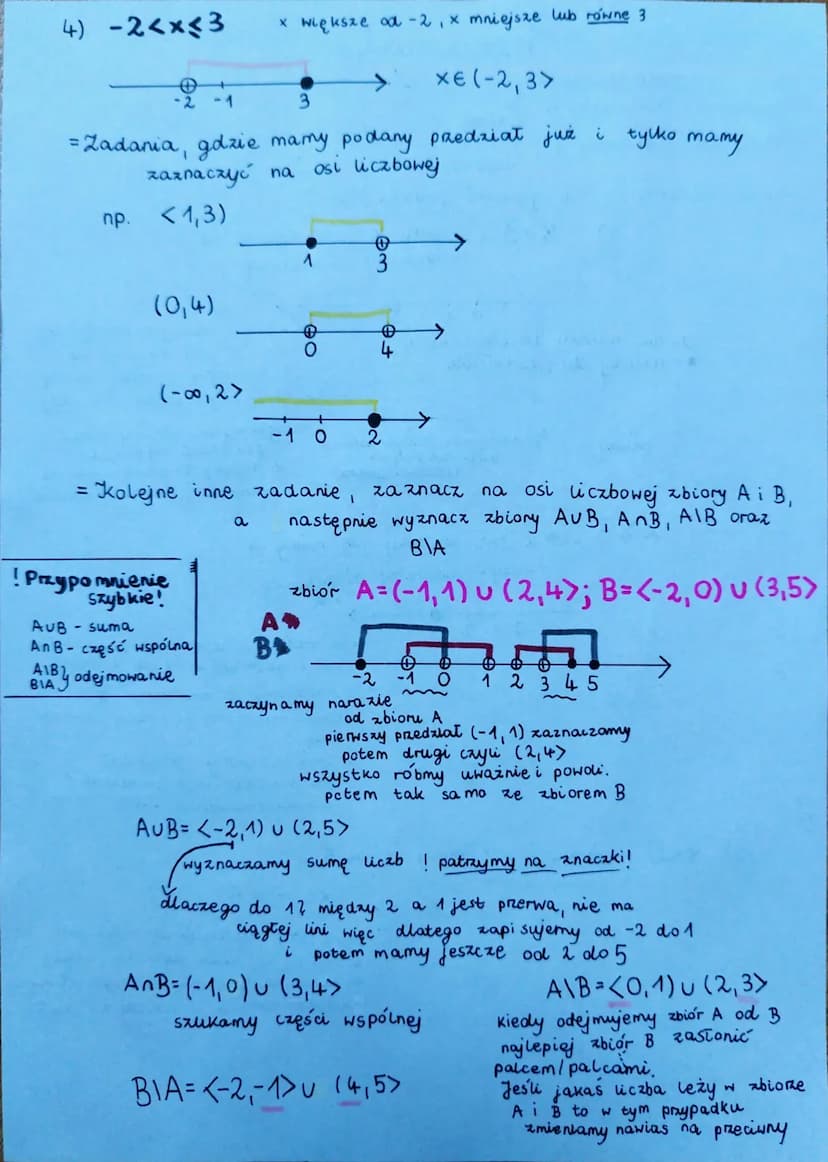 4) -2<x≤3 x większe od -2, x mniejsze lub równe 3
-2 -1 3 x∈(-2,3>
= Zadania, gdzie mamy podany przedział już i tylko mamy
zaznaczyć na osi liczbowej
np. <1,3)
1 3
(0,4)
0 4
(-∞,2>
-1 0 2
= Kolejne inne zadanie, zaznacz na osi liczbowej zbiory A i B,
a następnie wyznacz zbiory A∪B, A∩B, A\B oraz
B\A
! Przypomnienie
szybkie!
A∪B - suma
A∩B - część wspólna
A\B
B\A } odejmowanie
zbiór A=(-1,1)∪(2,4>; B=<-2,0)∪(3,5>
A
B
-2 -1 0 1 2 3 4 5
zaczynamy narazie
od zbioru A
pierwszy przedział (-1,1) zaznaczamy
potem drugi czyli (2,4>
wszystko róbmy uważnie i powoli.
potem tak samo ze zbiorem B
A∪B= <-2,1) ∪ (2,5>
wyznaczamy sumę liczb ! patrzymy na znaczki!
dlaczego do 1? między 2 a 1 jest przerwa, nie ma
ciągłej lini więc dlatego zapisujemy od -2 do 1
i potem mamy jeszcze od 2 do 5
A∩B= (-1,0)∪ (3,4>
szukamy części wspólnej
B\A= <-2,-1>∪ (4,5>
A\B=<0,1)∪(2,3>
kiedy odejmujemy zbiór A od B
najlepiej zbiór B zasłonić
palcem/palcami.
Jeśli jakaś liczba leży w zbiorze
A i B to w tym przypadku
zmieniamy nawias na przeciwny